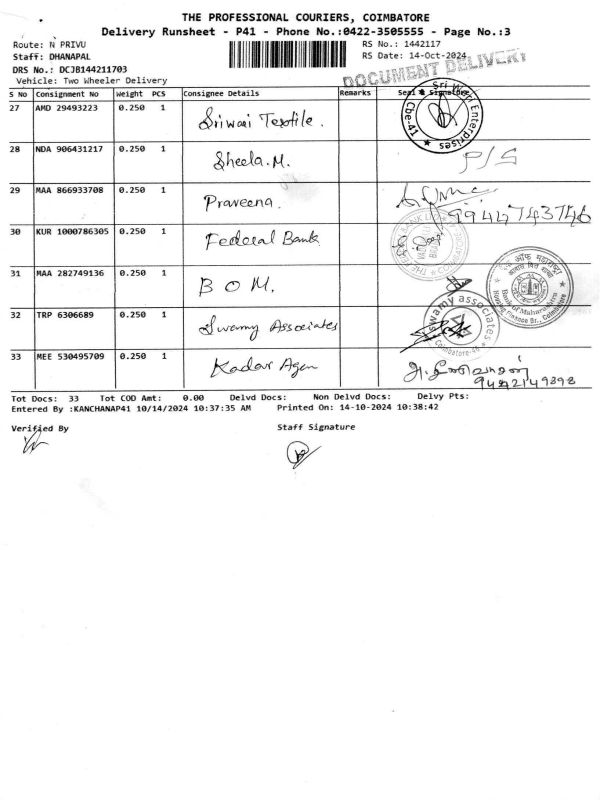 THE PROFESSIONAL COURIERS, COIMBATORE
Delivery Runsheet - P41 - Phone No.:0422-3505555 - Page No.:3
Route: N PRIVU
RS No.: 1442117
Staff: DHANAPAL
RS Date: 14-Oct-2024
DRS No.: DCJB144211703
DOCUMENT DELIVERY
Vehicle: Two Wheeler Delivery
S No Consignment No Weight PCS Consignee Details Remarks Seal & Signature
27 AMD 29493223 0.250 1 Sriwari Textile.
Sri Wari Enterprises Cbe-41
28 NDA 906431217 0.250 1 Sheela.M. P/S
29 MAA 866933708 0.250 1 Praveena. 9944743746
30 KUR 1000786305 0.250 1 Federal Bank
31 MAA 282749136 0.250 1 B O M.
बैंक ऑफ महाराष्ट्र
Bank of Maharashtra
Housing Finance Br., Coimbatore
32 TRP 6306689 0.250 1 Swamy Associates
swamy associates
Coimbatore-45
33 MEE 530495709 0.250 1 Kadar Agen
9442149898
Tot Docs: 33 Tot COD Amt: 0.00 Delvd Docs: Non Delvd Docs: Delvy Pts:
Entered By :KANCHANAP41 10/14/2024 10:37:35 AM Printed On: 14-10-2024 10:38:42
Verified By Staff Signature